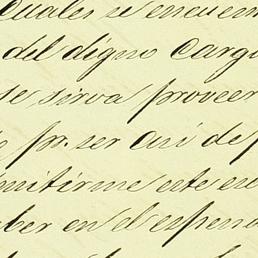 cuales se encuen
del digno cargo
se sirva proveer
pr. ser asi de
mitirme este es
ber en el espe